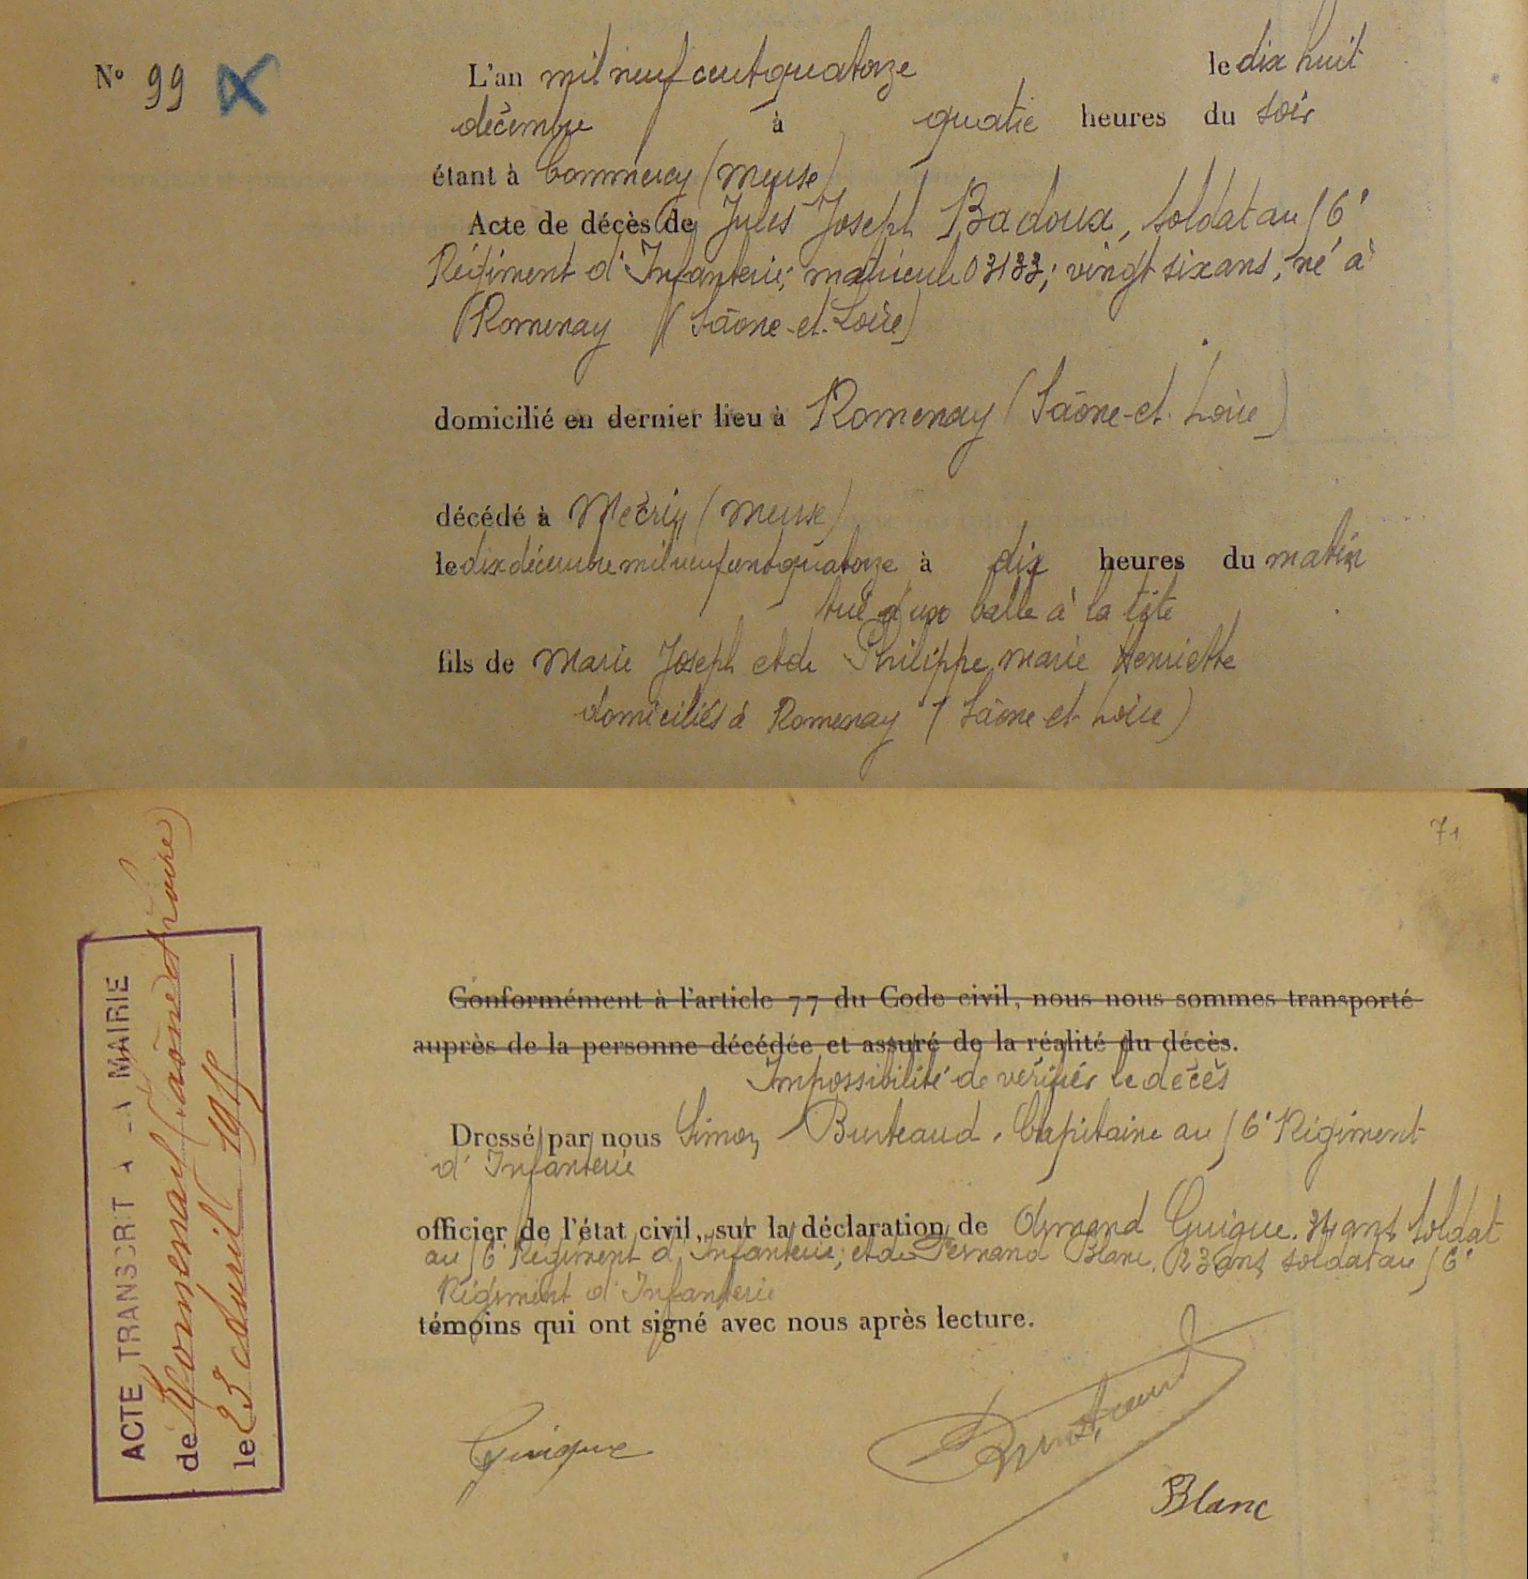 N° 99
L'an mil neuf cent quatorze le dix huit
décembre à quatre heures du soir
étant à Commercy (Meuse)
Acte de décès de Jules Joseph Badoux, soldat au 16e
Régiment d'Infanterie; matricule 03133; vingt six ans, né à
Romenay (Saône-et-Loire)
domicilié en dernier lieu à Romenay (Saône-et-Loire)
décédé à Mécrin (Meuse)
le dix décembre mil neuf cent quatorze à dix heures du matin
tué d'une balle à la tête
fils de Marie Joseph et de Philippe Marie Henriette
domiciliés à Romenay (Saône et Loire)
71
Conformément à l'article 77 du Code civil, nous nous sommes transporté
auprès de la personne décédée et assuré de la réalité du décès.
Impossibilité de vérifier le décès
Dressé par nous Simon Capitaine au 16e Régiment
d'Infanterie
officier de l'état civil, sur la déclaration de Armand Guigue. 34 ans soldat
au 16e Régiment d'Infanterie; et de Fernand Blanc. 23 ans soldat au 16e
Régiment d'Infanterie
témoins qui ont signé avec nous après lecture.
Guigue
Blanc
ACTE TRANSCRIT A LA MAIRIE
de Romenay (Saône et Loire)
le 23 avril 1915